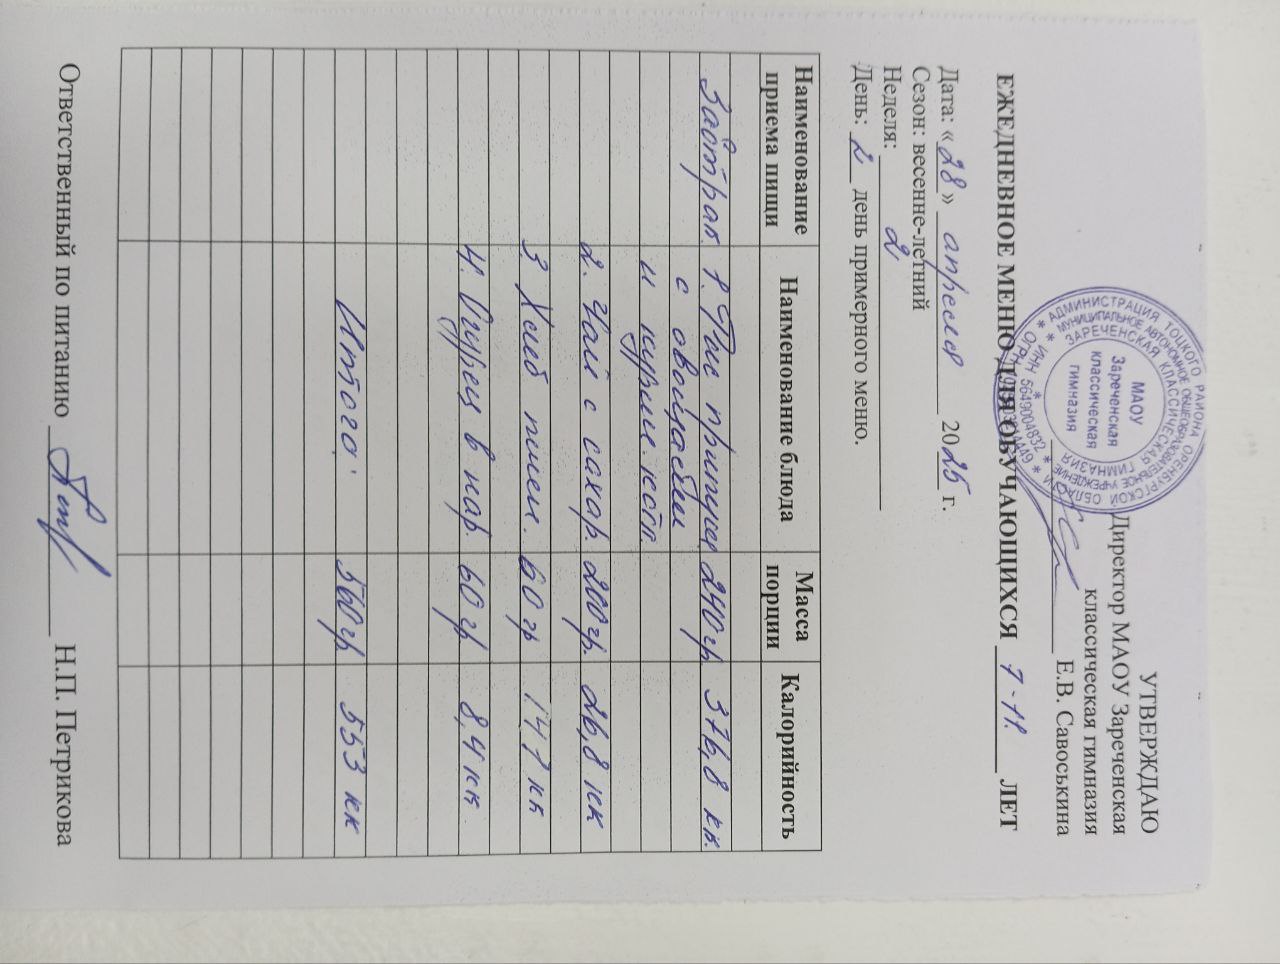 УТВЕРЖДАЮ
Директор МАОУ Зареченская
классическая гимназия
Е.В. Савоськина
АДМИНИСТРАЦИЯ ТОЦКОГО РАЙОНА ОРЕНБУРГСКОЙ ОБЛАСТИ
МУНИЦИПАЛЬНОЕ АВТОНОМНОЕ ОБЩЕОБРАЗОВАТЕЛЬНОЕ УЧРЕЖДЕНИЕ
ЗАРЕЧЕНСКАЯ КЛАССИЧЕСКАЯ ГИМНАЗИЯ
ИНН 5649004832
ОГРН
МАОУ
Зареченская
классическая
гимназия
ЕЖЕДНЕВНОЕ МЕНЮ ДЛЯ ОБУЧАЮЩИХСЯ 7-11 ЛЕТ
Дата: «28» апреля 2025 г.
Сезон: весенне-летний
Неделя: 2
День: 2 день примерного меню.
Наименование приема пищи Наименование блюда Масса порции Калорийность
Завтрак 1. Рис припущ. 240 гр. 376,8 кк.
с овощами
и курин. котл.
2. Чай с сахар. 200 гр. 26,8 кк
3. Хлеб пшен. 60 гр 141 кк
4. Огурец в нар. 60 гр 8,4 кк.
Итого: 560 гр 553 кк
Ответственный по питанию Н.П. Петрикова